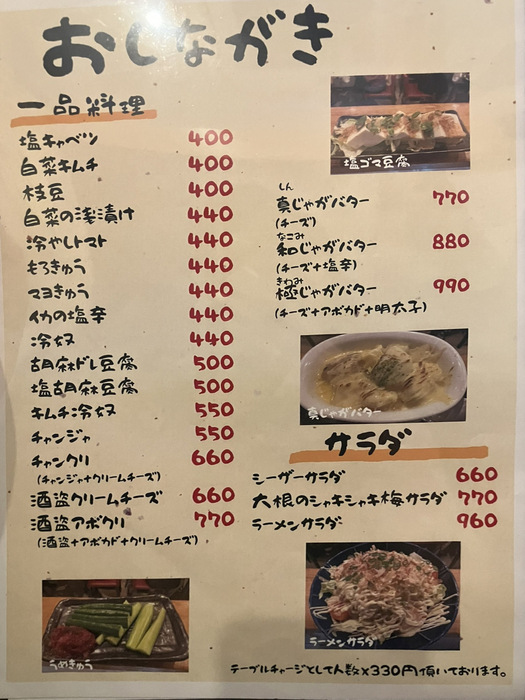 おしながき
一品料理
塩キャベツ 400
白菜キムチ 400
枝豆 400
白菜の浅漬け 440
冷やしトマト 440
もろきゅう 440
マヨきゅう 440
イカの塩辛 440
冷奴 440
胡麻ドレ豆腐 500
塩胡麻豆腐 500
キムチ冷奴 550
チャンジャ 550
チャンクリ 660
(チャンジャ+クリームチーズ)
酒盗クリームチーズ 660
酒盗アボクリ 770
(酒盗+アボカド+クリームチーズ)
うめきゅう
塩ゴマ豆腐
しん
真じゃがバター 770
(チーズ)
なごみ
和じゃがバター 880
(チーズ+塩辛)
きわみ
極じゃがバター 990
(チーズ+アボカド+明太子)
真じゃがバター
サラダ
シーザーサラダ 660
大根のシャキシャキ梅サラダ 770
ラーメンサラダ 960
ラーメンサラダ
テーブルチャージとして人数×330円頂いております。